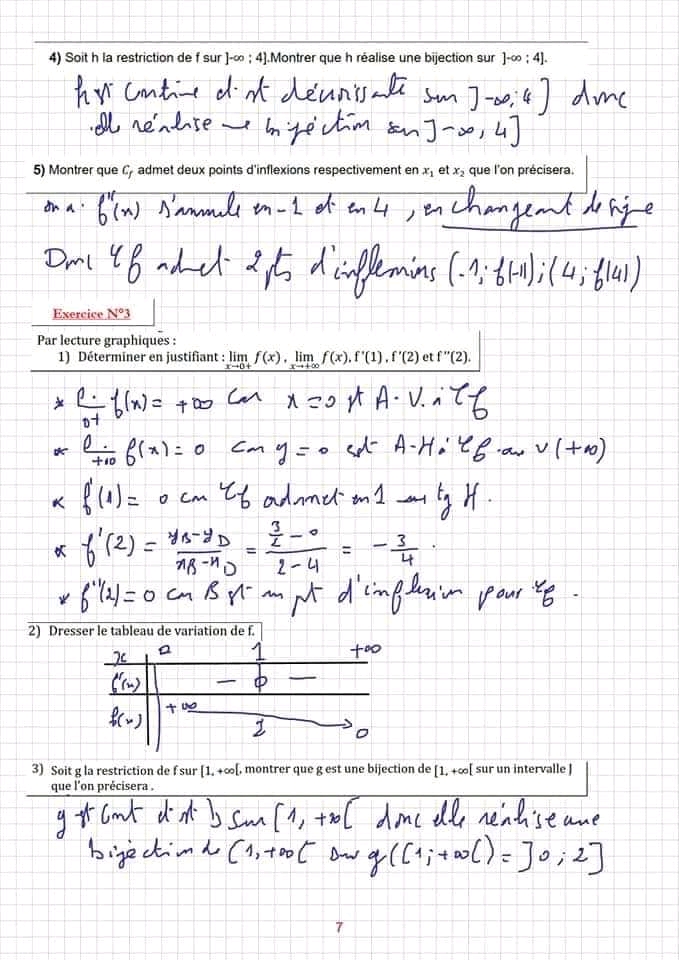 4) Soit h la restriction de f sur ]-∞ ; 4].Montrer que h réalise une bijection sur ]-∞ ; 4].
h est continue et st décroissante sur ]-∞; 4] donc
elle réalise une bijéction sur ]-∞, 4]
5) Montrer que Cf admet deux points d'inflexions respectivement en x₁ et x₂ que l'on précisera.
on a : f''(x) s'annule en -1 et en 4, en changeant de signe
Donc Cf admet 2 pts d'inflexions (-1; f(-1)); (4; f(4))
Exercice N°3
Par lecture graphiques :
1) Déterminer en justifiant : lim x→0+ f(x), lim x→+∞ f(x), f'(1), f'(2) et f''(2).
* lim 0+ f(x) = +∞ car x=0 est A.V. à Cf
* lim +∞ f(x) = 0 car y=0 est A-H à Cf au v(+∞)
* f'(1) = 0 car Cf admet en 1 une tg H.
* f'(2) = (yB-yD)/(xB-xD) = (3/2 - 0)/(2-4) = -3/4.
* f''(2) = 0 car B est un pt d'inflexion pour Cf.
2) Dresser le tableau de variation de f.
x 0 1 +∞
f'(x) - 0 -
f(x) +∞ 2 0
3) Soit g la restriction de f sur [1, +∞[, montrer que g est une bijection de [1, +∞[ sur un intervalle J
que l'on précisera .
g est cont et st ↘ sur [1, +∞[ donc elle réalise une
bijéction de [1, +∞[ sur g([1; +∞[) = ]0; 2]
7